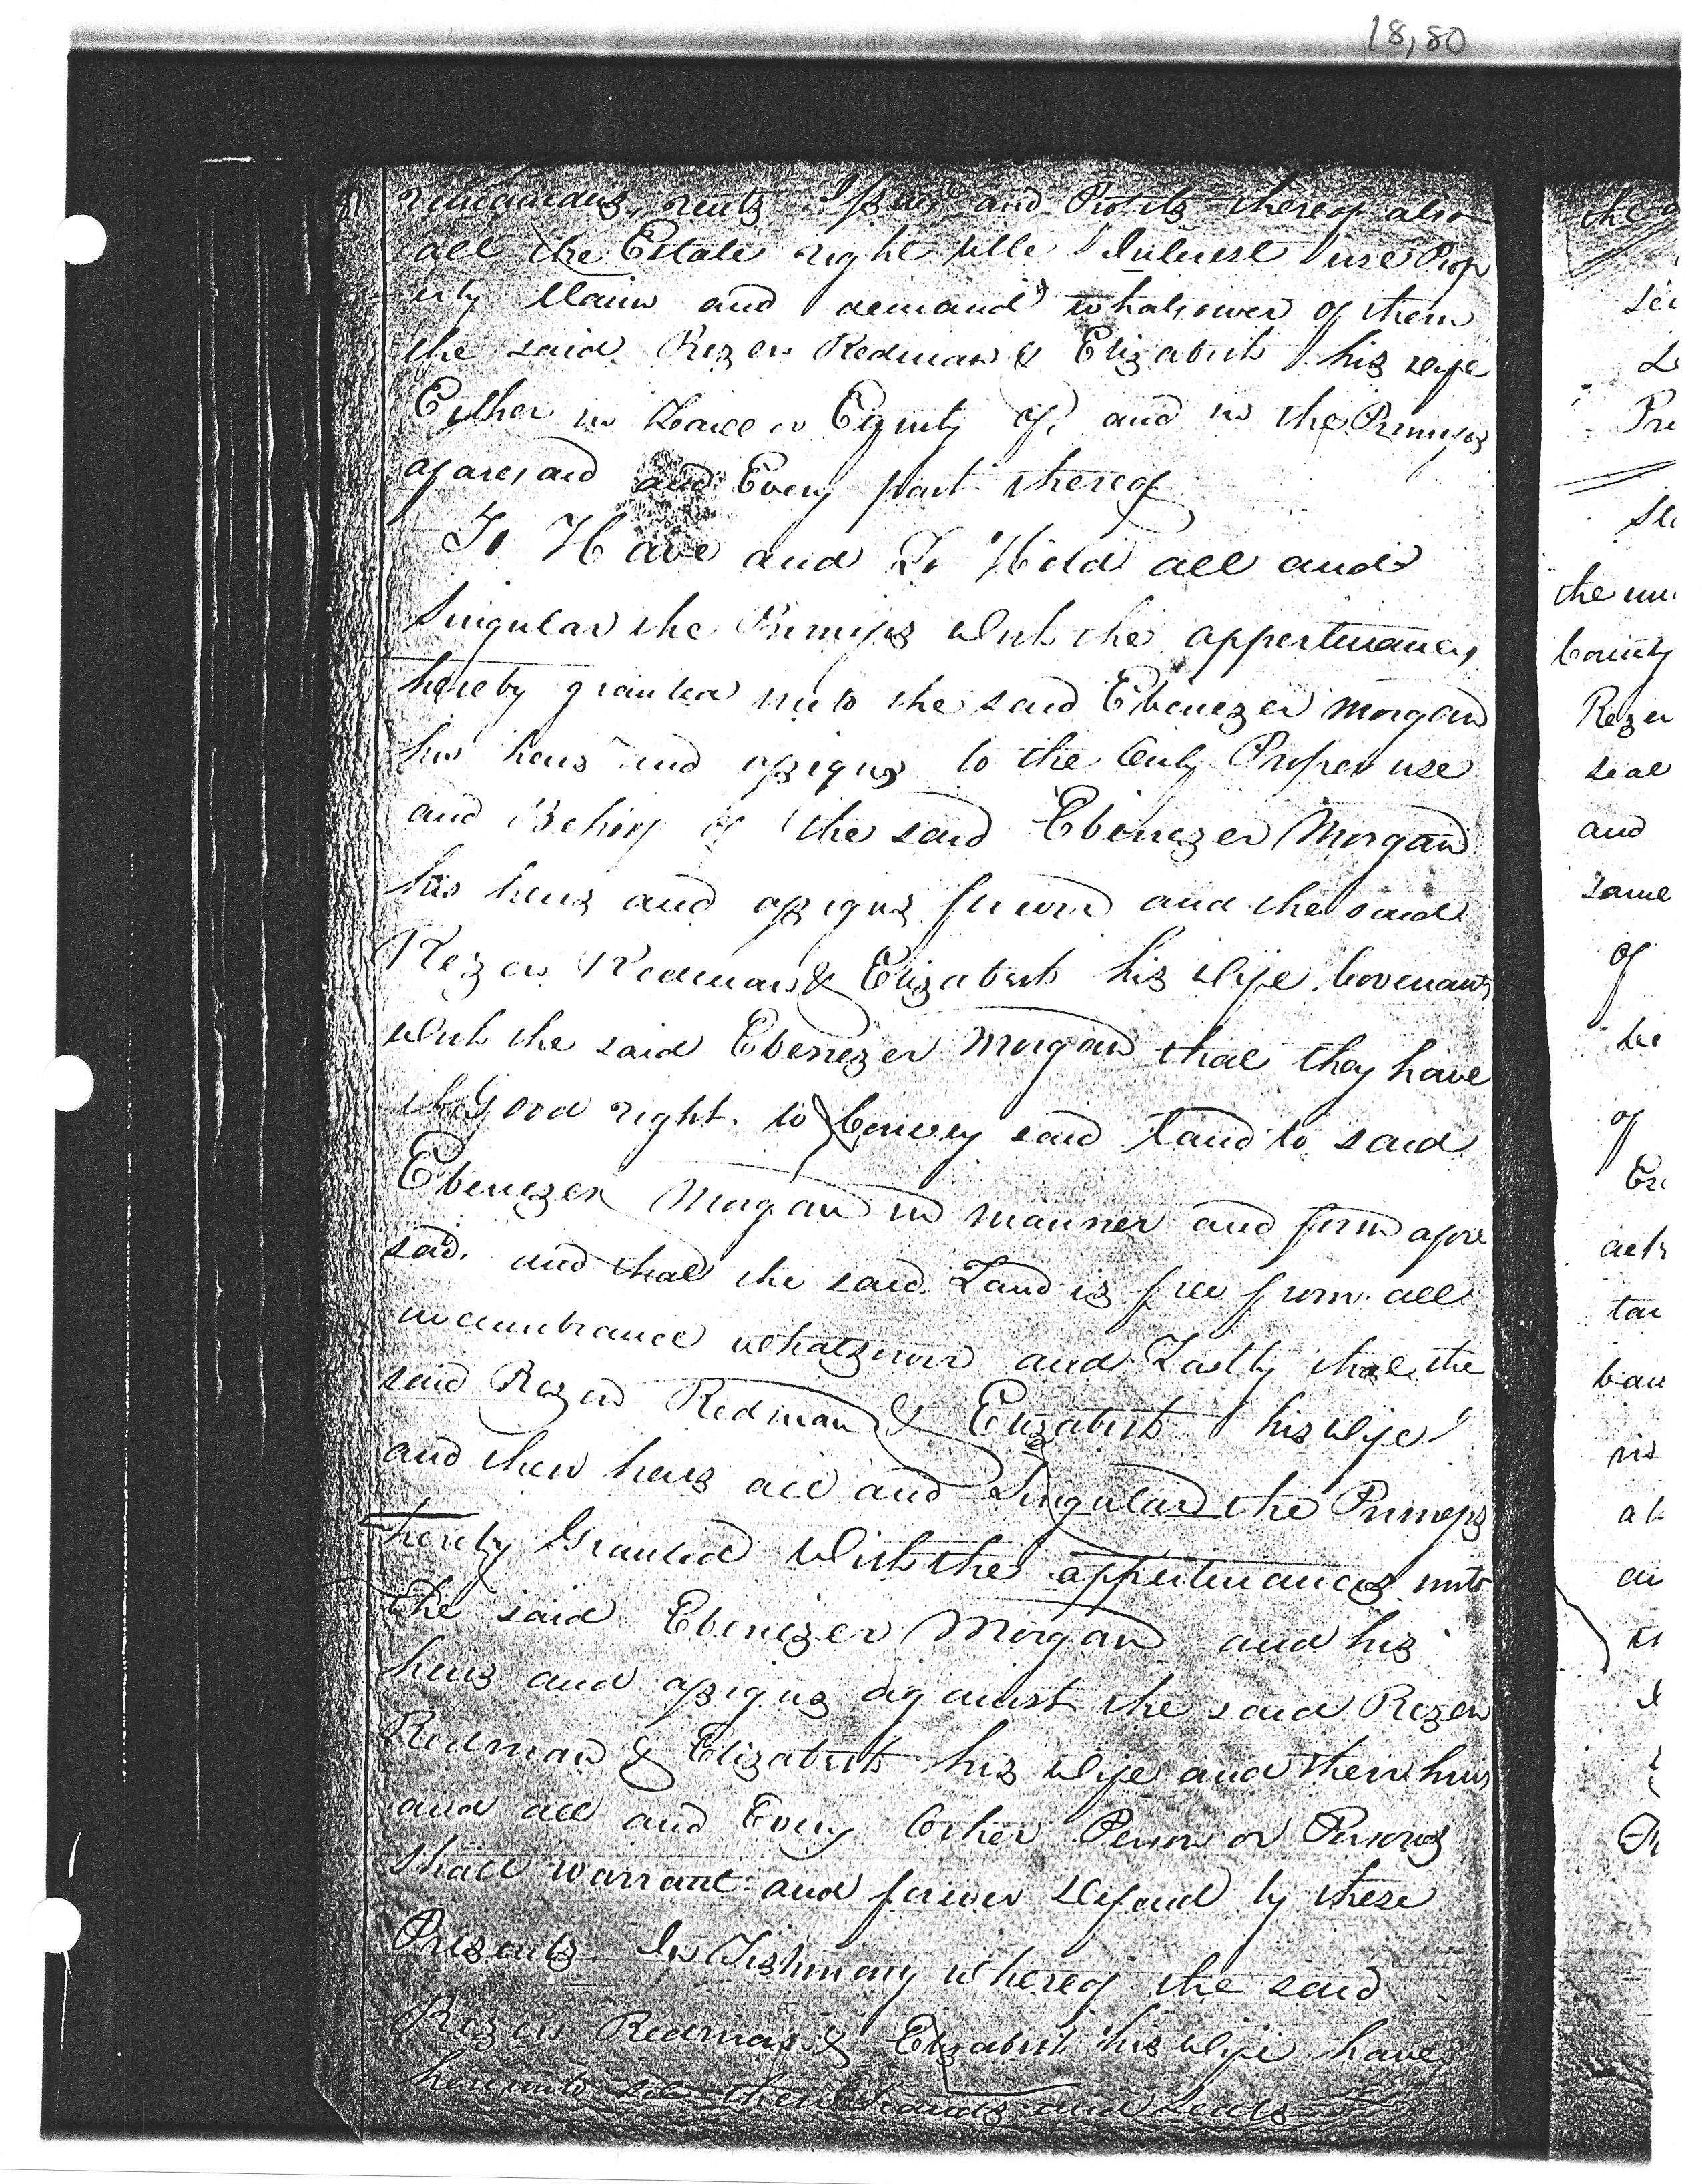 18,80
81 remainders, rents Issues and Profits thereof also
all the Estate right title Interest use Prop
erty Claim and demand whatsoever of them
the said Rezen Redman & Elizabeth his wife
Either in Law or Equity of, and in the Premises
aforesaid and Every part thereof
To Have and To Hold all and
Singular the Premises With the appertinances
hereby granted unto the said Ebenezer Morgan
his heirs and assigns to the Only Proper use
and Behoof of the said Ebenezer Morgan
his heirs and assigns forever and the said
Rezen Redman & Elizabeth his Wife Covenants
With the said Ebenezer Morgan that they have
good right to Convey said Land to said
Ebenezer Morgan in manner and form afore
said. and that the said Land is free from all
incumbrance whatsoever and Lastly that the
said Rezen Redman & Elizabeth his Wife
and their heirs all and Singular the Premises
hereby Granted With the appertinances unto
the said Ebenezer Morgan and his
heirs and assigns against the said Rezen
Redman & Elizabeth his Wife and their heirs
and all and Every Other Person or Persons
Shall warrant and forever Defend by these
Presents In Testimony whereof the said
Rezen Redman & Elizabeth his Wife have
hereunto set their hands and seals
the un
County
Rezen
seal
and
same
of
he
of